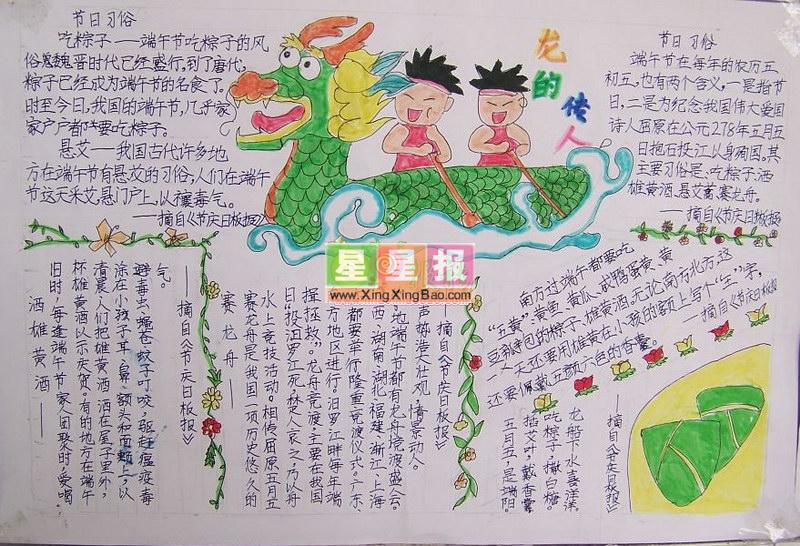 节日习俗
吃粽子——端午节吃粽子的风
俗魏晋时代已经盛行,到了唐代,
粽子已经成为端午节的名食了。
时至今日,我国的端午节,几乎家
家户户都要吃粽子。
悬艾——我国古代许多地
方在端午节有悬艾的习俗,人们在端午
节这天采艾,悬门户上,以禳毒气。
——摘自《节庆日板报》
龙的传人
节日习俗
端午节在每年的农历五
初五,也有两个含义,一是指节
日,二是为纪念我国伟大爱国
诗人屈原在公元278年五月五
日抱石投江以身殉国。其
主要习俗是,吃粽子,洒
雄黄酒,悬艾蒿,赛龙舟。
——摘自《节庆日板报》
星星报
www.XingXingBao.com
洒雄黄酒——
旧时,每逢端午节家人团聚时,爱喝
杯雄黄酒以示庆贺。有的地方在端午
清晨人们把雄黄酒洒在屋子里外,
涂在小孩子耳、鼻、额头和面颊上,以
避毒虫、蝇苍蚊子叮咬,驱赶瘟疫毒
气。
——摘自《节庆日板报》
赛龙舟——
赛龙舟是我国一项历史悠久的
水上竞技活动。相传屈原五月五
日投汨罗江死,楚人哀之,乃以舟
楫拯救。龙舟竞渡,主要在我国
方地区进行,汨罗江畔每年端
都要举行隆重竞渡仪式。广东
西、湖南、湖北、福建、浙江、上海
地端午节都有龙舟竞渡盛会。
声势浩大壮观,情景动人。
——摘自《节庆日板报》
南方过端午都要吃
“五黄”:黄鱼、黄瓜、咸鸭蛋黄、黄
豆瓣包的粽子、雄黄酒,无论南方北方,这
一天还要用雄黄在小孩的额上写个“王”字,
还要佩戴五颜六色的香囊。
——摘自《节庆日板报》
五月五,是端阳。
插艾叶,戴香囊。
吃粽子,撒白糖。
龙船下水喜洋洋。
——摘自《节庆日板报》